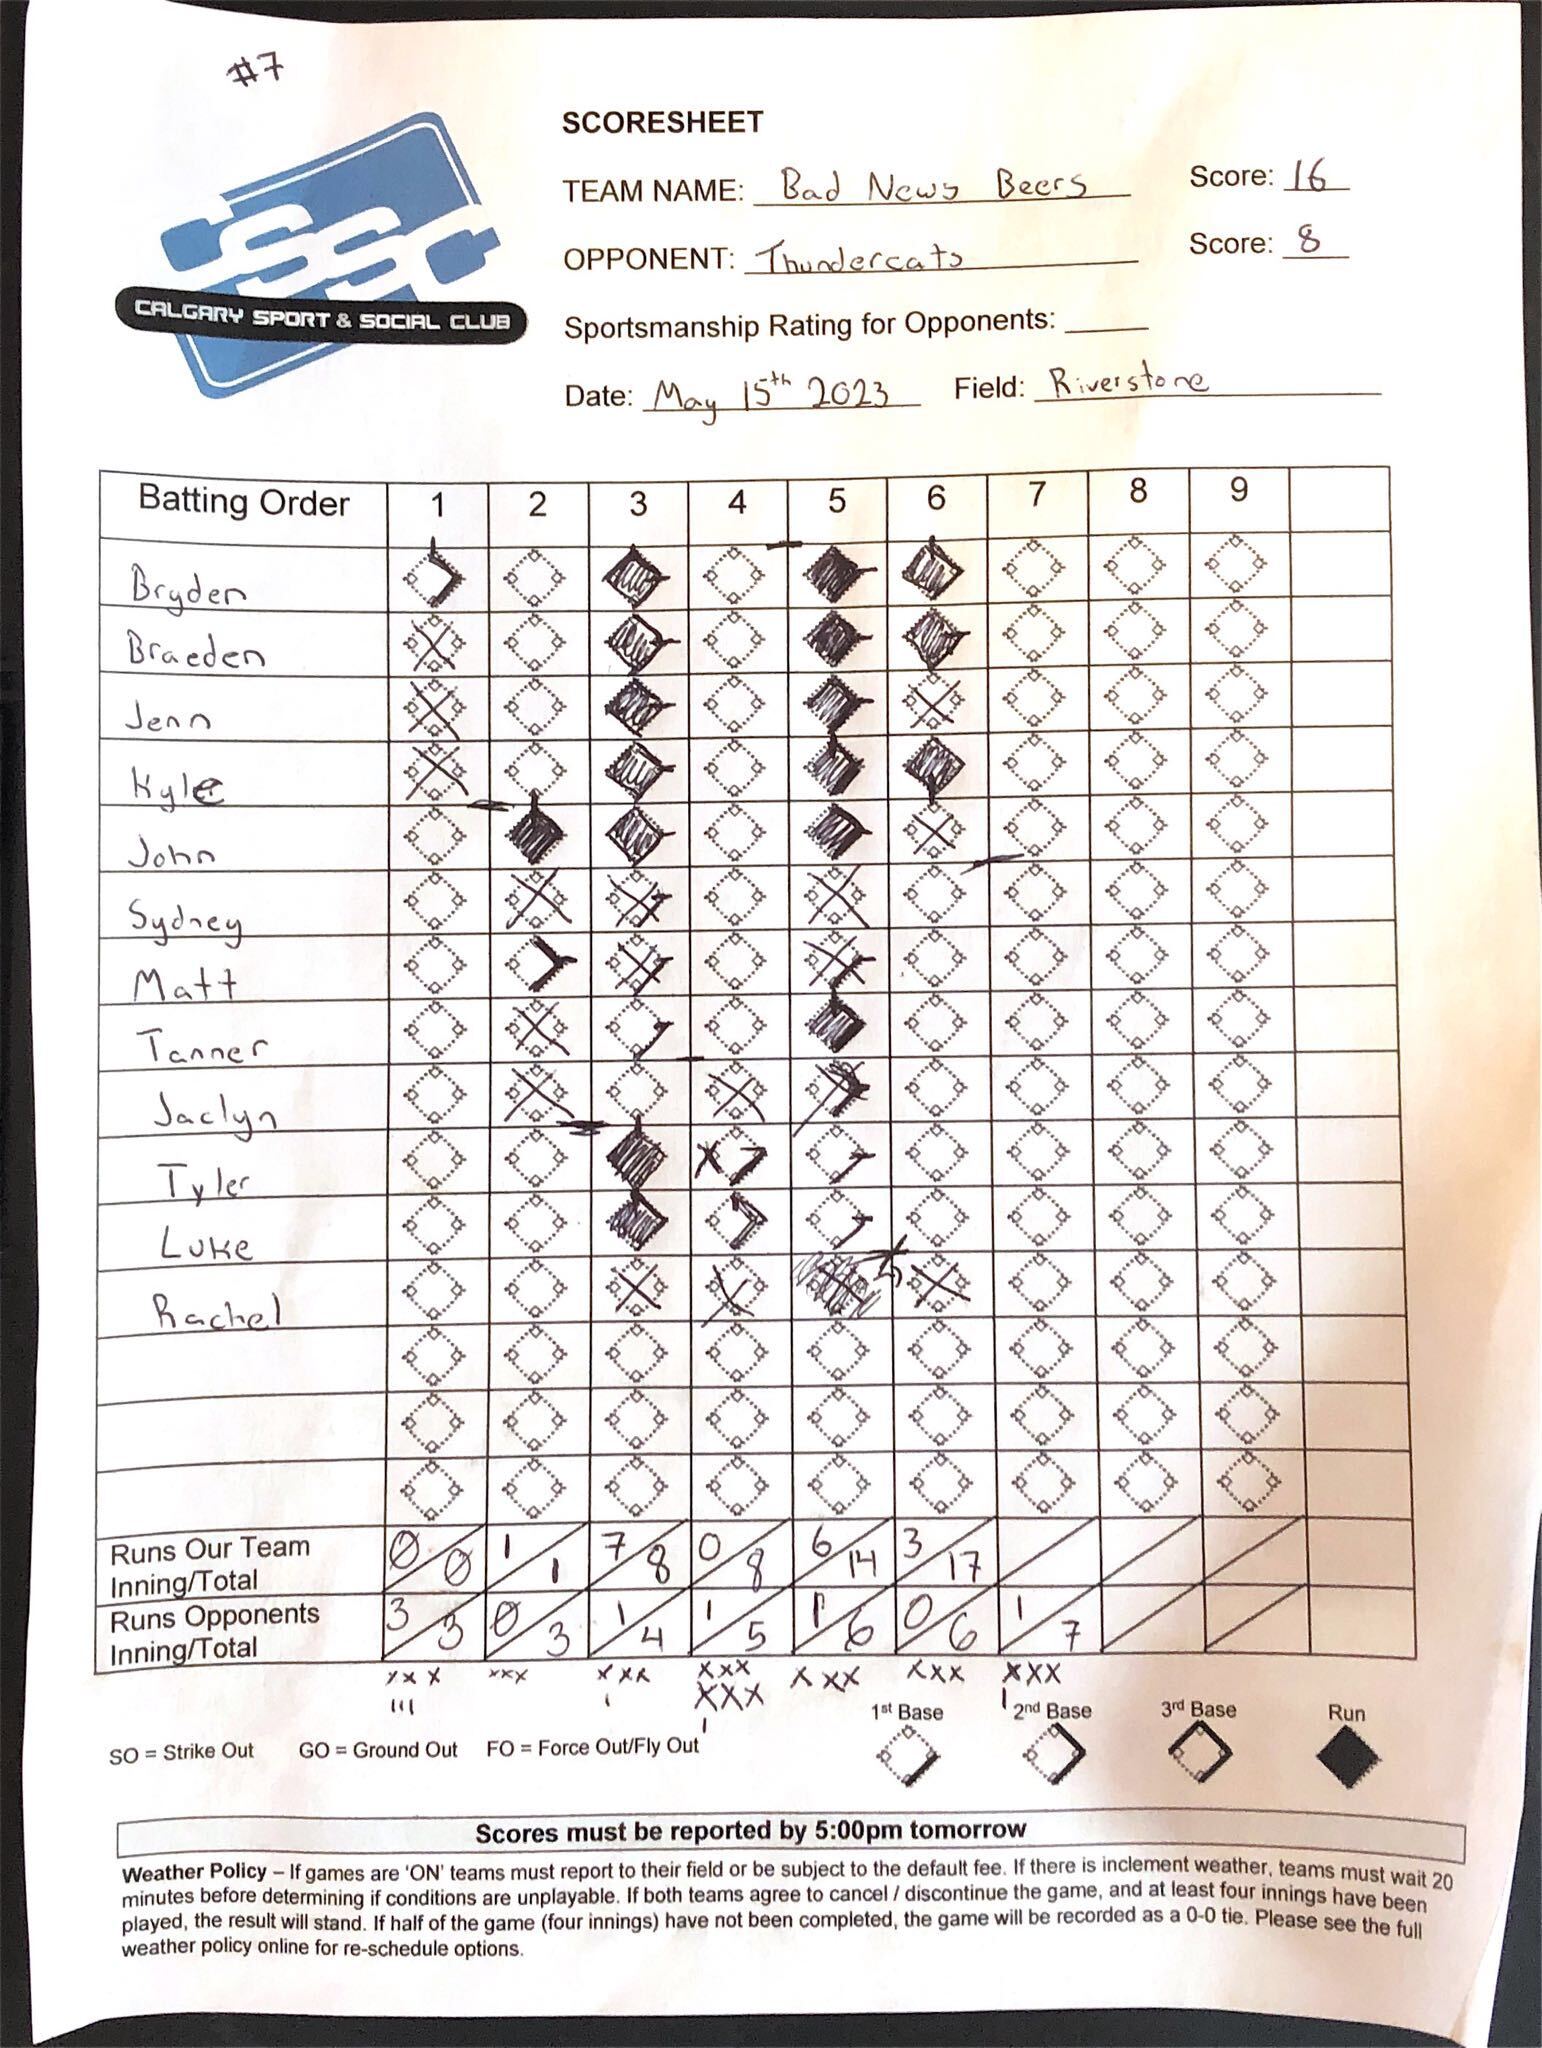 #7
CSSC
CALGARY SPORT & SOCIAL CLUB
SCORESHEET
TEAM NAME: Bad News Beers Score: 16
OPPONENT: Thundercats Score: 8
Sportsmanship Rating for Opponents:
Date: May 15th 2023 Field: Riverstone
Batting Order 1 2 3 4 5 6 7 8 9
Bryden
Braeden
Jenn
Kyle
John
Sydney
Matt
Tanner
Jaclyn
Tyler
Luke
Rachel
Runs Our Team Inning/Total 0/0 1/1 7/8 0/8 6/14 3/17
Runs Opponents Inning/Total 3/3 0/3 1/4 1/5 1/6 0/6 1/7
xxx xxx xxx xxx xxx xxx xxx
III I XXX I
I
1st Base 2nd Base 3rd Base Run
SO = Strike Out GO = Ground Out FO = Force Out/Fly Out
Scores must be reported by 5:00pm tomorrow
Weather Policy – If games are 'ON' teams must report to their field or be subject to the default fee. If there is inclement weather, teams must wait 20
minutes before determining if conditions are unplayable. If both teams agree to cancel / discontinue the game, and at least four innings have been
played, the result will stand. If half of the game (four innings) have not been completed, the game will be recorded as a 0-0 tie. Please see the full
weather policy online for re-schedule options.